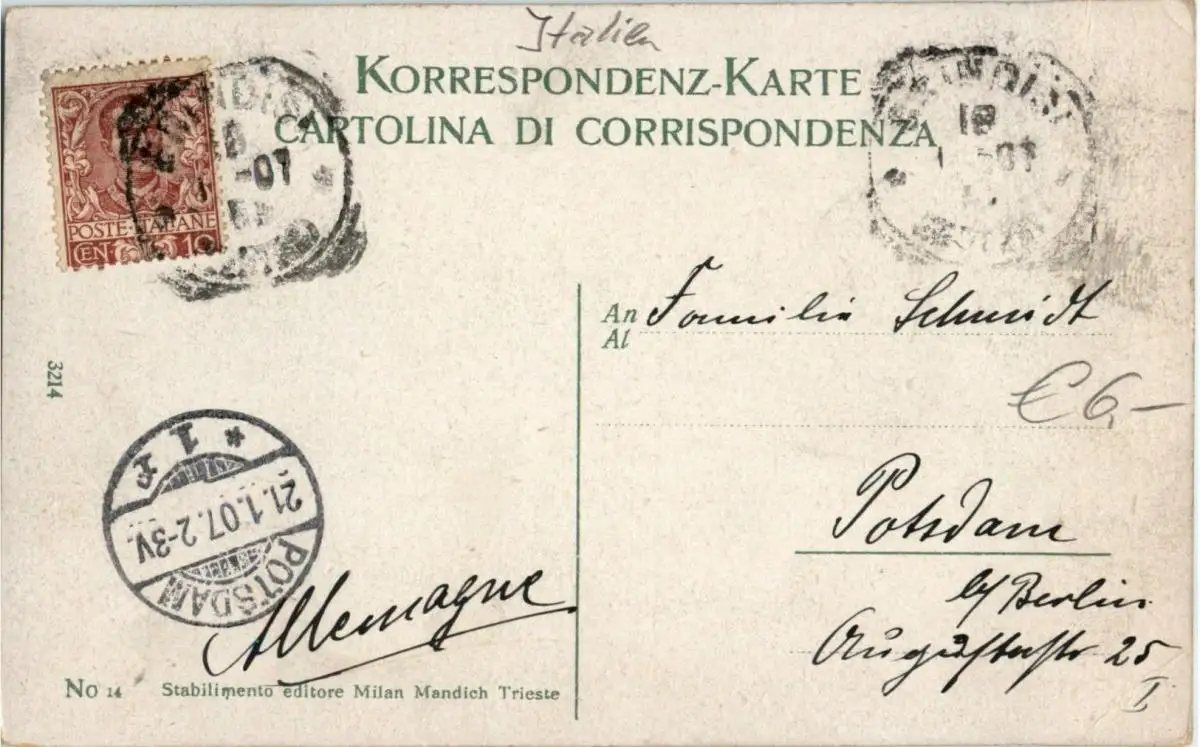 Italien
KORRESPONDENZ-KARTE
CARTOLINA DI CORRISPONDENZA
BRINDISI
18
-07
POSTE ITALIANE
CEN 10
BRINDISI
18
-07
An Familie Schmidt
Al
€ 6,—
3214
1 *
21.1.07. 2-3V.
POTSDAM
Potsdam
b/ Berlin
Auguststr 25
I
Allemagne
No 14 Stabilimento editore Milan Mandich Trieste